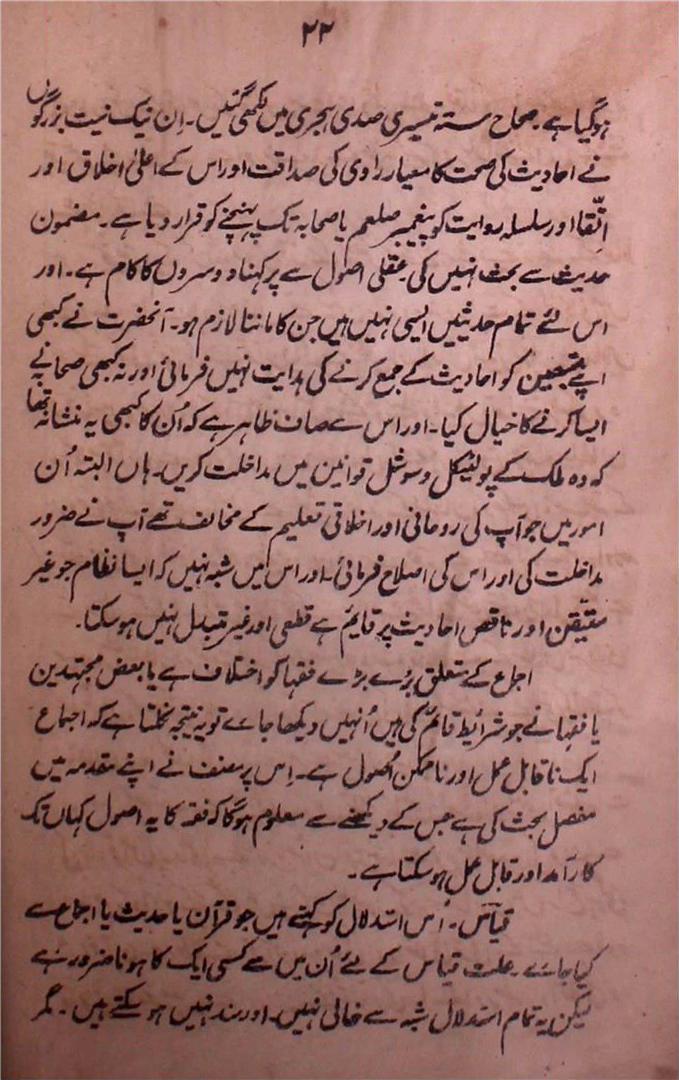 ۲۲
ہوگیا ہے۔ صحاح ستہ تیسری صدی ہجری میں لکھی گئیں۔ اِن نیک نیت بزرگوں
نے احادیث کی صحت کا معیار راوی کی صداقت اور اس کے اعلیٰ اخلاق اور
اتّقا اور سلسلہ روایت کو پیغمبر صلعم یا صحابہ تک پہنچنے کو قرار دیا ہے۔ مضمون
حدیث سے بحث نہیں کی۔ عقلی اصول سے پرکہنا دوسروں کا کام ہے۔ اور
اس لئے تمام حدیثیں ایسی نہیں ہیں جن کا ماننا لازم ہو۔ آنحضرت نے کبھی
اپنے متبعین کو احادیث کے جمع کرنے کی ہدایت نہیں فرمائی اور نہ کبھی صحابہ نے
ایسا کرنے کا خیال کیا۔ اور اس سے صاف ظاہر ہے کہ اُن کا کبھی یہ منشا نہ تھا
کہ وہ ملک کے پولٹیکل و سوشل قوانین میں مداخلت کریں۔ ہاں البتہ اُن
امور میں جو آپ کی روحانی اور اخلاقی تعلیم کے مخالف تھے آپ نے ضرور
مداخلت کی اور اس کی اصلاح فرمائی۔ اور اس میں شبہ نہیں کہ ایسا نظام جو غیر
متیّقن اور ناقص احادیث پر قایم ہے قطعی اور غیر متبدل نہیں ہوسکتا۔
اجماع کے متعلق بڑے بڑے فقہا کو اختلاف ہے یا بعض مجتہدین
یا فقہا نے جو شرائط قائم کی ہیں اُنہیں دیکھا جاے تو یہ نتیجہ نکلتا ہے کہ اجماع
ایک ناقابل عمل اور ناممکن اُصول ہے۔ اِس پر مصنف نے اپنے مقدمہ میں
مفصل بحث کی ہے جس کے دیکھنے سے معلوم ہوگا کہ فقہ کا یہ اصول کہاں تک
کارآمد اور قابل عمل ہوسکتا ہے۔
قیاس۔ اُس استدلال کو کہتے ہیں جو قرآن یا حدیث یا اجماع سے
کیا جاے۔ علت قیاس کے لئے اُن میں سے کسی ایک کا ہونا ضرور ہے
لیکن یہ تمام استدلال شبہ سے خالی نہیں۔ اور سند نہیں ہو سکتے ہیں۔ مگر